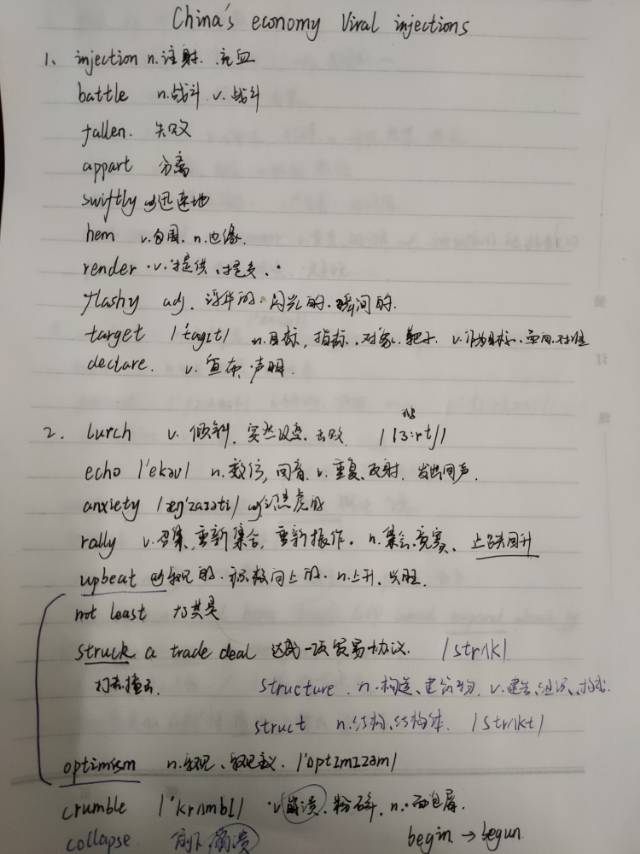 China's economy Viral injections
1、injection n.注射.充血
battle n.战斗 v.战斗
fallen. 失败
appart 分离
swiftly 迅速地
hem v.包围. n.边缘.
render v.提供、提交.
flashy adj. 浮华的. 闪光的. 瞬间的.
target /'tagɪt/ n.目标, 指标. 对象. 靶子. v.作为目标.
declare. v.宣布.声明.
2. lurch v. 倾斜. 突然改变. 击败 /lɜ:rtʃ/
echo /'ekəʊ/ n. 效仿, 回音. v.重复.反射. 发出回声.
anxiety 焦虑
rally v.召集, 重新集合, 重新振作. n.集会.竞赛. 止跌回升
upbeat 乐观的. 积极向上的. n.上升.
not least 尤其是
struck a trade deal 达成一项贸易协议. /strʌk/
structure n.构造、建筑物. v.建造、组织、
struct n.结构、结构体. /strʌkt/
optimism n.乐观、乐观主义. /'ɒptɪmɪzəm/
crumble /'krʌmbl/ v.崩溃.粉碎. n.面包屑.
collapse 倒下 崩溃 begin → begun